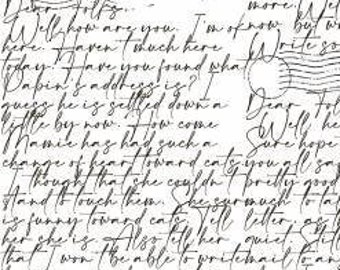 Dear Folks,
Well how are you. I'm ok
here. Haven't much here
today. Have you found what
Pabin's address is? I
guess he is settled down a
little by now. How come
Mamie has had such a
change of heart toward cats
I thought that she couldn't
stand to touch them. She sur
is funny toward cats. Tell
her she is. Also tell her
that I won't be able to write
more
now but w
Write so
Dear Fol
Well he
Sure hope
you all sa
pretty good
much to ta
letter, as
quiet. Sill
mail to an